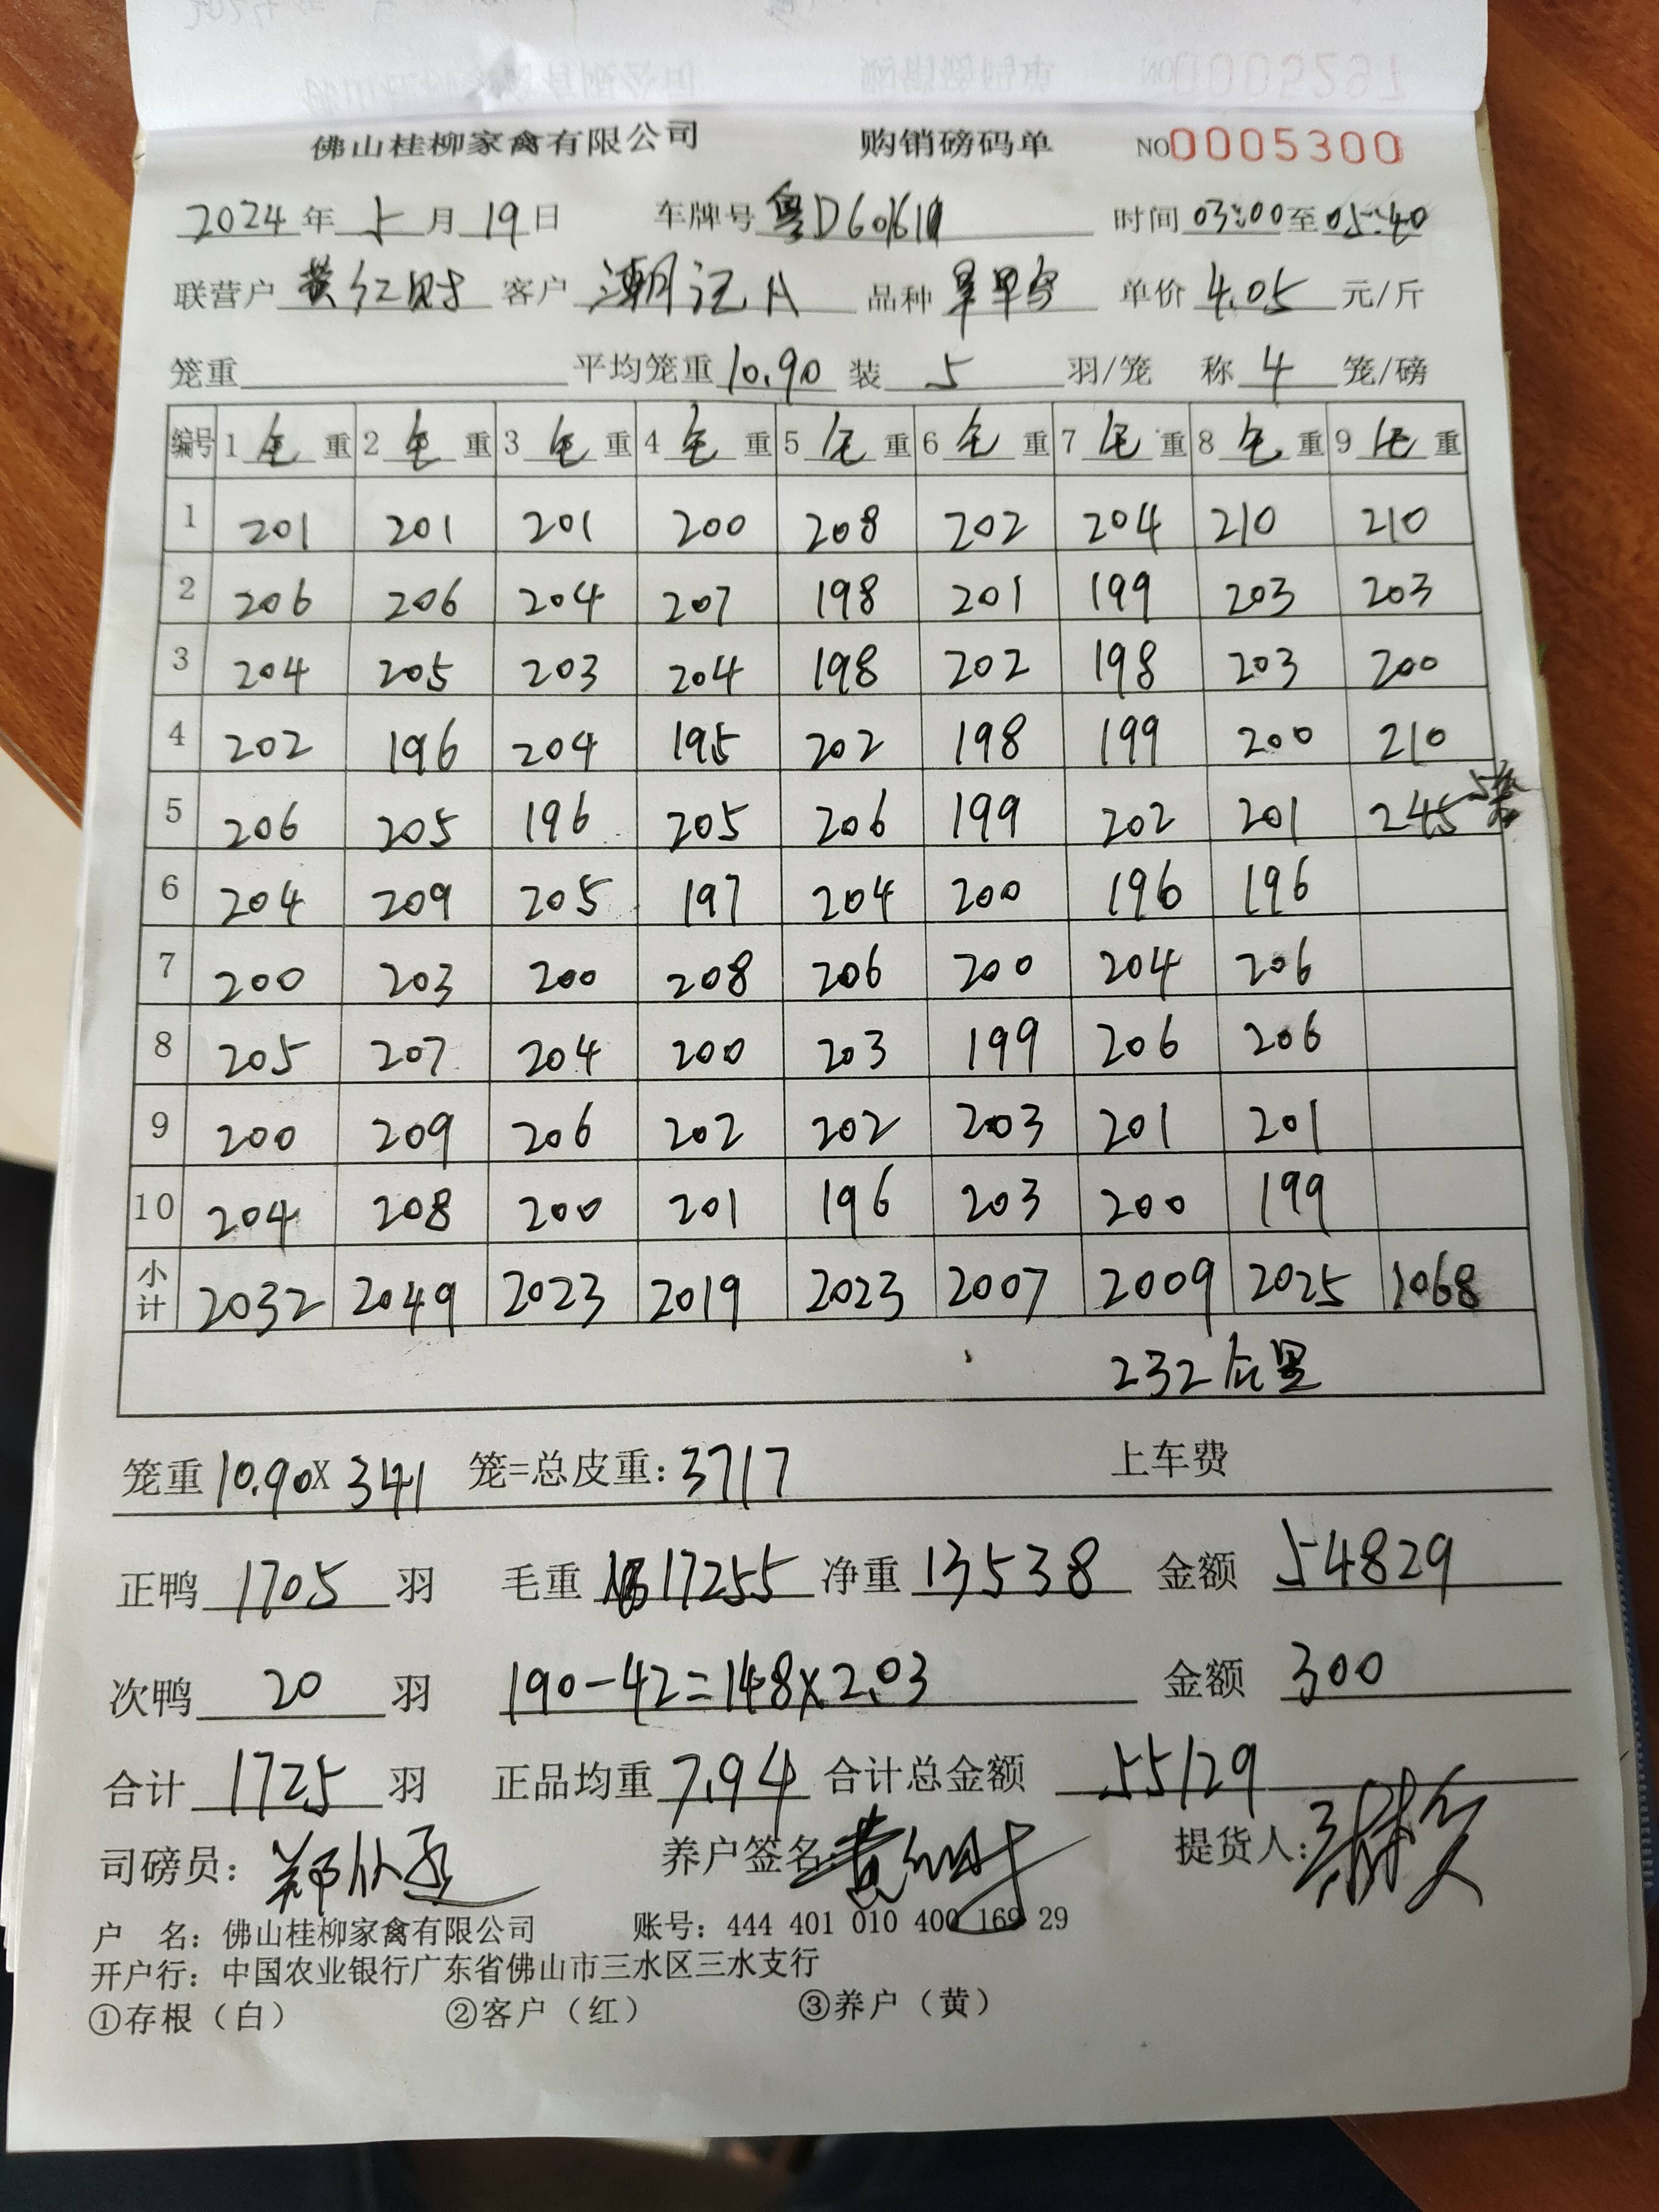 佛山桂柳家禽有限公司 购销磅码单 NO0005300
2024年 5月 19日 车牌号 粤D60161 时间 03:00至05:40
联营户 黄红财 客户 潮记A 品种 旱鸭 单价 4.05 元/斤
笼重 平均笼重 10.90 装 5 羽/笼 称 4 笼/磅
编号 1毛重 2毛重 3毛重 4毛重 5毛重 6毛重 7毛重 8毛重 9毛重
1 201 201 201 200 208 202 204 210 210
2 206 206 204 207 198 201 199 203 203
3 204 205 203 204 198 202 198 203 200
4 202 196 204 195 202 198 199 200 210
5 206 205 196 205 206 199 202 201 245 5笼
6 204 209 205 197 204 200 196 196
7 200 203 200 208 206 200 204 206
8 205 207 204 200 203 199 206 206
9 200 209 206 202 202 203 201 201
10 204 208 200 201 196 203 200 199
小计 2032 2049 2023 2019 2023 2007 2009 2025 1068
232公里
笼重 10.90X 341 笼=总皮重: 3717 上车费
正鸭 1705 羽 毛重 17255 净重 13538 金额 54829
次鸭 20 羽 190-42=148x2.03 金额 300
合计 1725 羽 正品均重 7.94 合计总金额 55129
司磅员: 养户签名: 提货人:
户 名: 佛山桂柳家禽有限公司 账号: 444 401 010 400 169 29
开户行: 中国农业银行广东省佛山市三水区三水支行
①存根(白) ②客户(红) ③养户(黄)